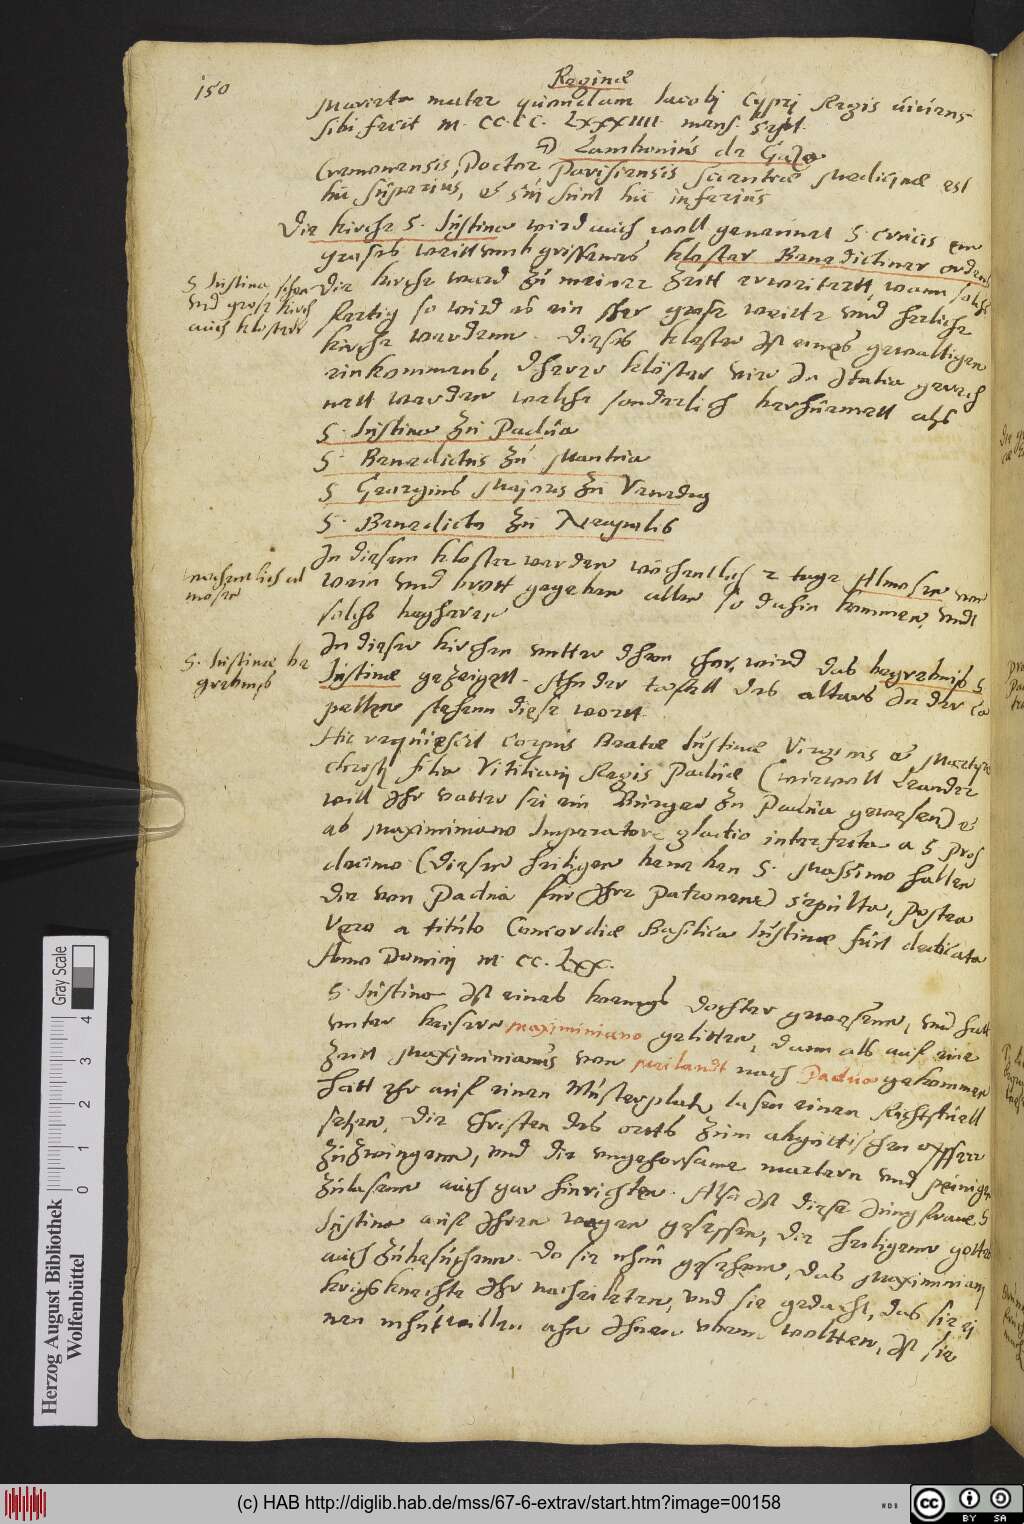 150
Reginæ
Marieta mater quondam Jacobj Cyprj Regis viuens
sibi fecit M. CCCC. LXXXIIII. mens. Sept.
Lambonius de Gazo
Cremonensis, Doctor Parisiensis scientiæ Medicinæ est
hic superius, et sui sunt hic inferius
Die kirche S. Justina wird auch woll genannet S. Crucis
grases kloster Benedictiner orden
S. Justina schon
vnd grose kirch
auch kloster
Die kirche ward zu meiner zeitt erweitertt, wann solche
fertig so wird es ein sher grose weitte vnd herliche
kirche werdenn. Dieses kloster Ist eines gewaltigen
einkommens, derer klöster vier In Italia gerech
nett werden welche sonderlich berhümett als
S. Justina zu Padua
S. Benedictus zu Mantua
S. Georgius Majoris zu Venedig
S. Benedicto zu Neapolis
In diesem kloster werden wöchentlich 2 tage Almosen von
wein vnd brott gegeben allen so dahin kommen, vndt
solchs begheren
wochentlich al
mosen
In dieser kirchen vntter dhem chor, wird das begrebnis S
Justinæ gezeigett. Ahn der taffell des altars In der Ca
pellen stehenn diese wortt.
S. Justinæ be
grebnis
Hic requiescit corpus Beatæ Justinæ Virginis et Martyris
Christj filia Vitilianj Regis Paduæ (wiewoll Leander
will Ihr vatter sei ein Bürger zu Padua gewesen) et
ab Maximiniano Imperatore gladio interfecta a S Pros
docimo (diesen heiligen neben S. Massimo halten
die von Padua für Ihre Patronenn) sepulta, postea
Vero a titulo Concordiæ Basilica Justinæ fuit dedicata
Anno Dominj M. CC. LXX.
S. Justina Ist eines koenigs dochter gewesenn, vnd hatt
vnter keiser Maximiniano gelitten, dann als auf eine
zeitt Maximinianus von Meilandt nach Padua gekommen
hatt ehr auf einen Müsterplatz lasen einen Richtstuell
setzen, die Christen des orttes zum abgöttischen opffern
zuzwingenn, vnd die vngehorsame martern vnd peinigen
zulasenn auch gar hinrichten. Also Ist diese Jungfraue S
Justina auf Ihren wagen gesessen, die heiligenn gottes
auch zubesuchenn. Do sie nhun gesehenn, das Maximinianj
kriegsknechte Ihr nacheileten, vnd sie gedacht, das sie ei
nen mhutwillen ahn Ihnen woltten, Ist sie
Herzog August Bibliothek
Wolfenbüttel
Gray Scale
0 1 2 3 4
(c) HAB http://diglib.hab.de/mss/67-6-extrav/start.htm?image=00158
WDB
cc BY SA